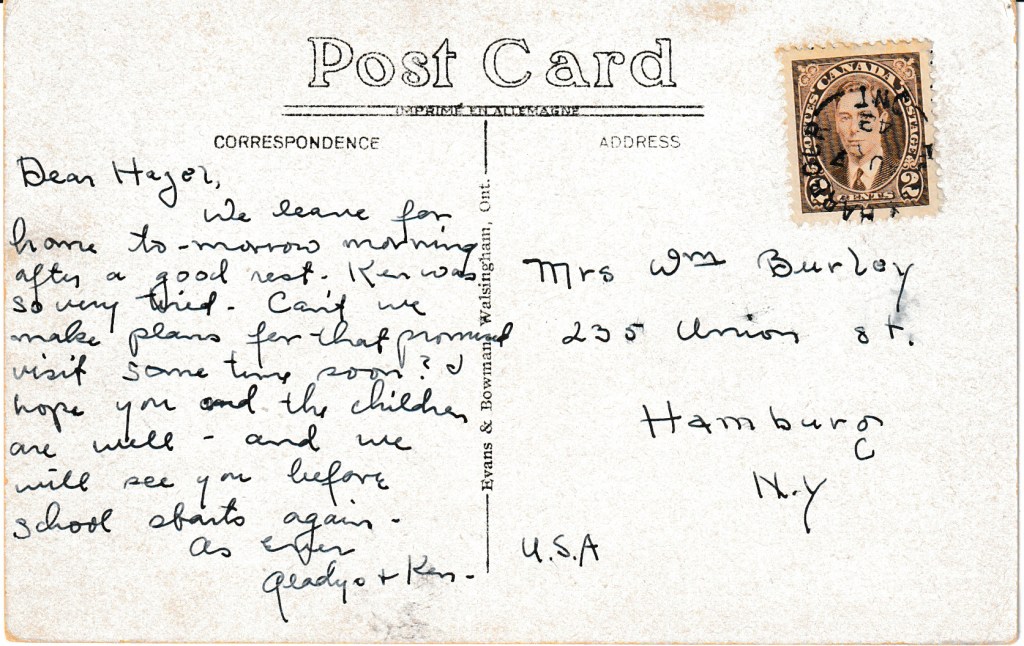 Post Card
IMPRIMÉ EN ALLEMAGNE
CORRESPONDENCE
ADDRESS
Dear Hazel,
We leave for
home to-morrow morning
after a good rest. Ken was
so very tired. Can't we
make plans for that promised
visit some time soon? I
hope you and the children
are well - and we
will see you before
school starts again.
As Ever
Gladys + Ken.
Evans & Bowman, Walsingham, Ont.
POSTES CANADA POSTAGE
2 CENTS 2
ONT
Mrs Wm Burley
235 Union St.
Hamburg
N.Y
U.S.A